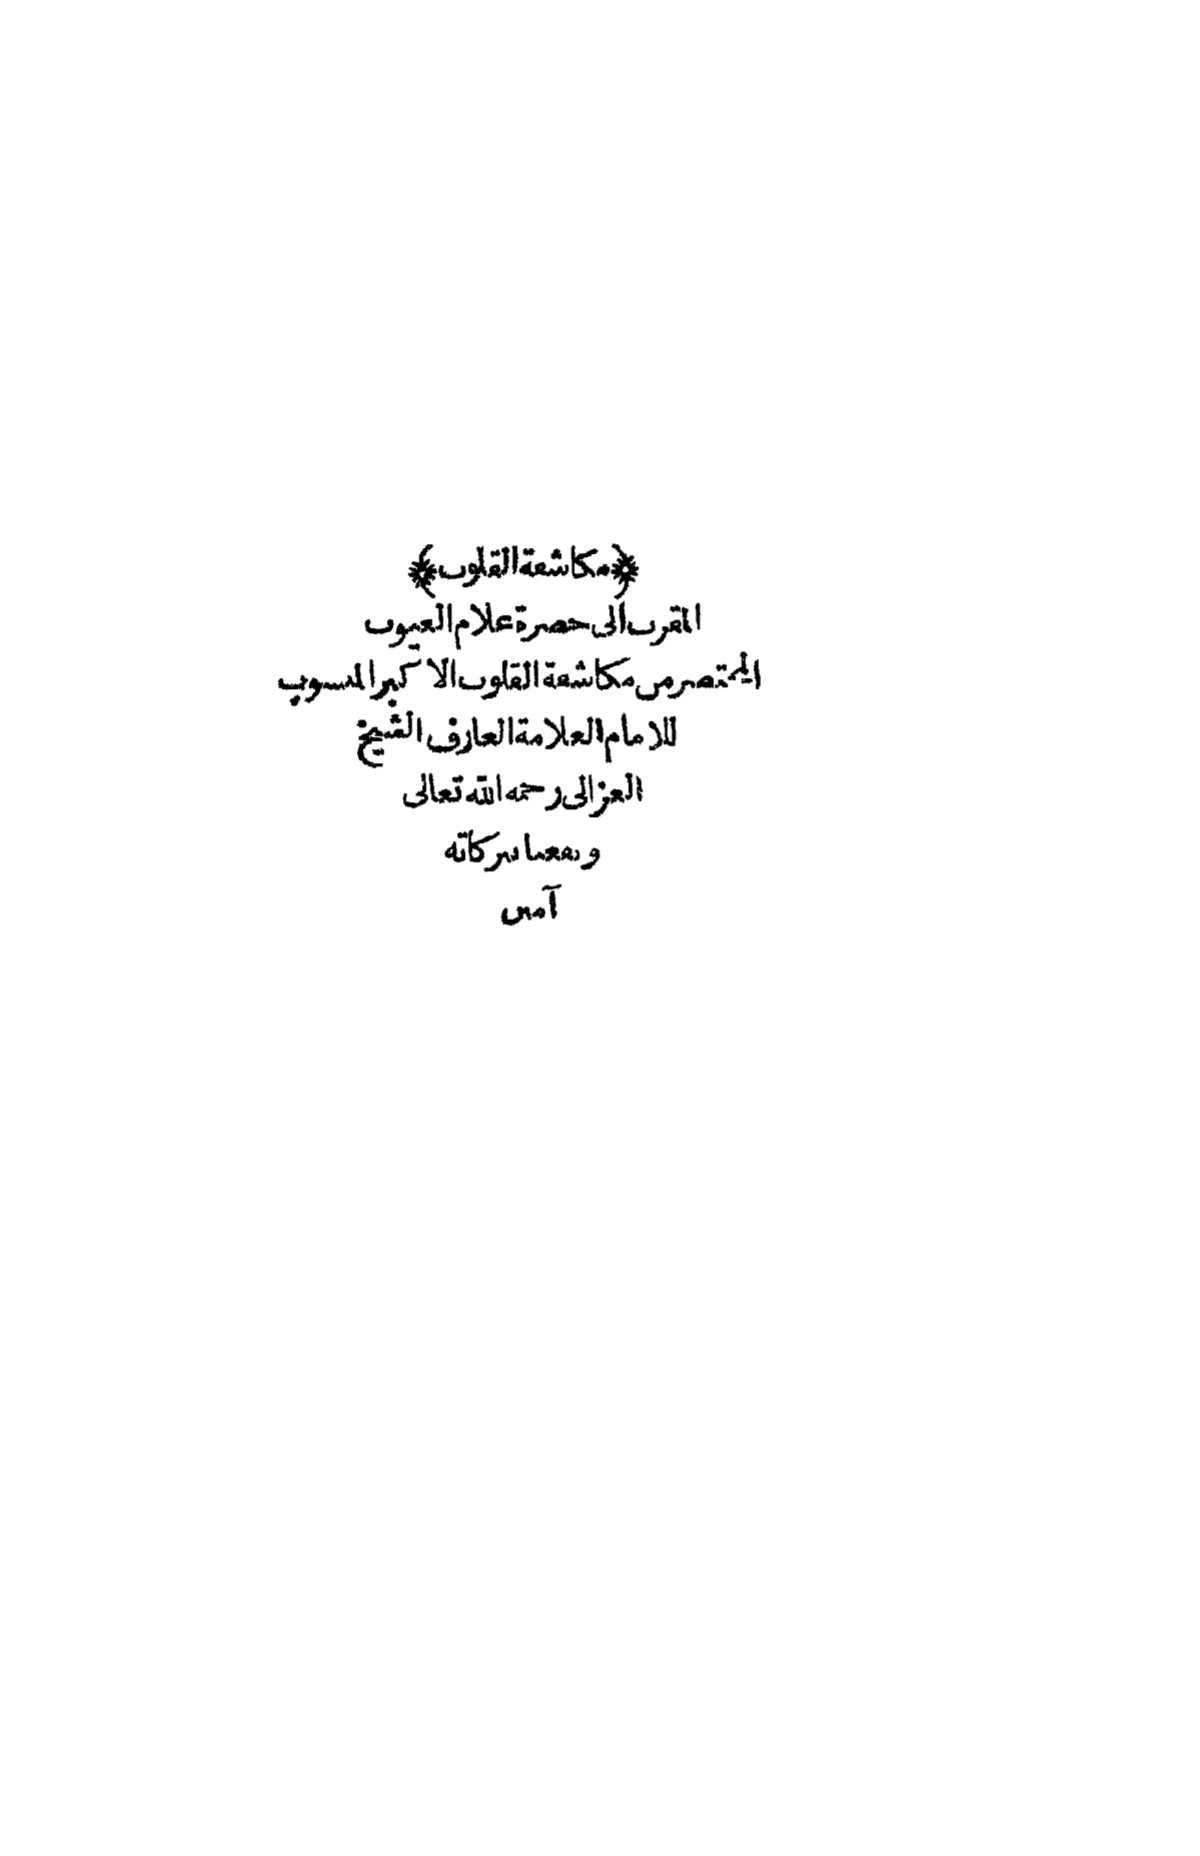 ﴿مكاشفة القلوب﴾
المقرب الى حضرة علام الغيوب
المختصر من مكاشفة القلوب الاكبر المنسوب
للامام العلامة العارف الشيخ
الغزالى رحمه الله تعالى
ونفعنا ببركاته
آمين